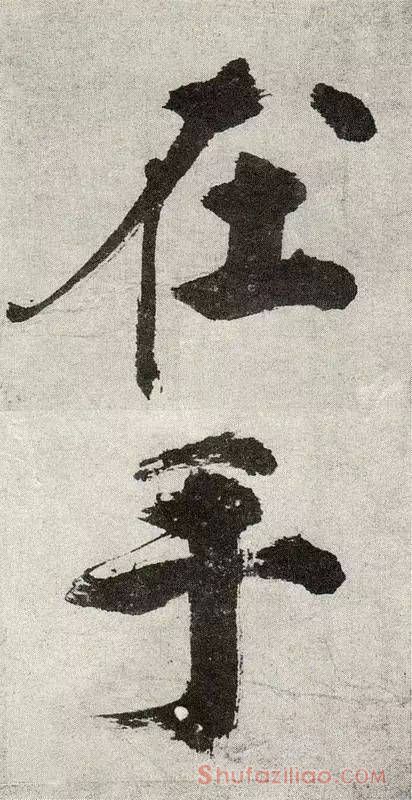 在
乎
Shufaziliao.com